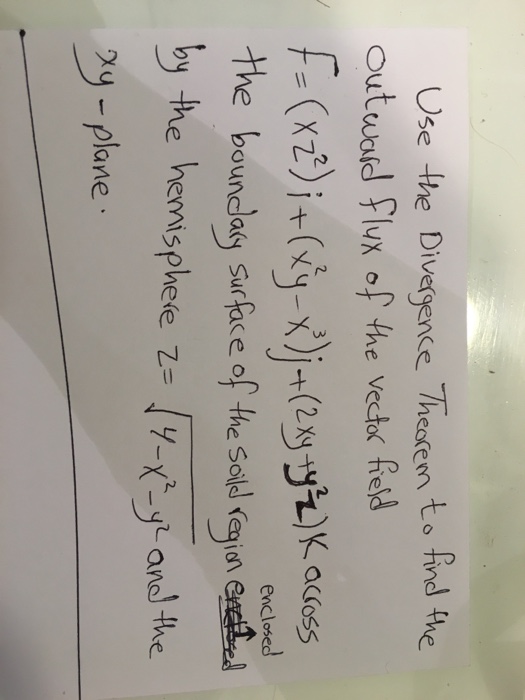 Use the Divergence Theorem to find the
outward flux of the vector field
F = (xz²)i + (x²y - x³)j + (2xy + y²z)K across
enclosed
the boundary surface of the soild region enclosed
by the hemisphere z = √4-x²-y² and the
xy - plane.